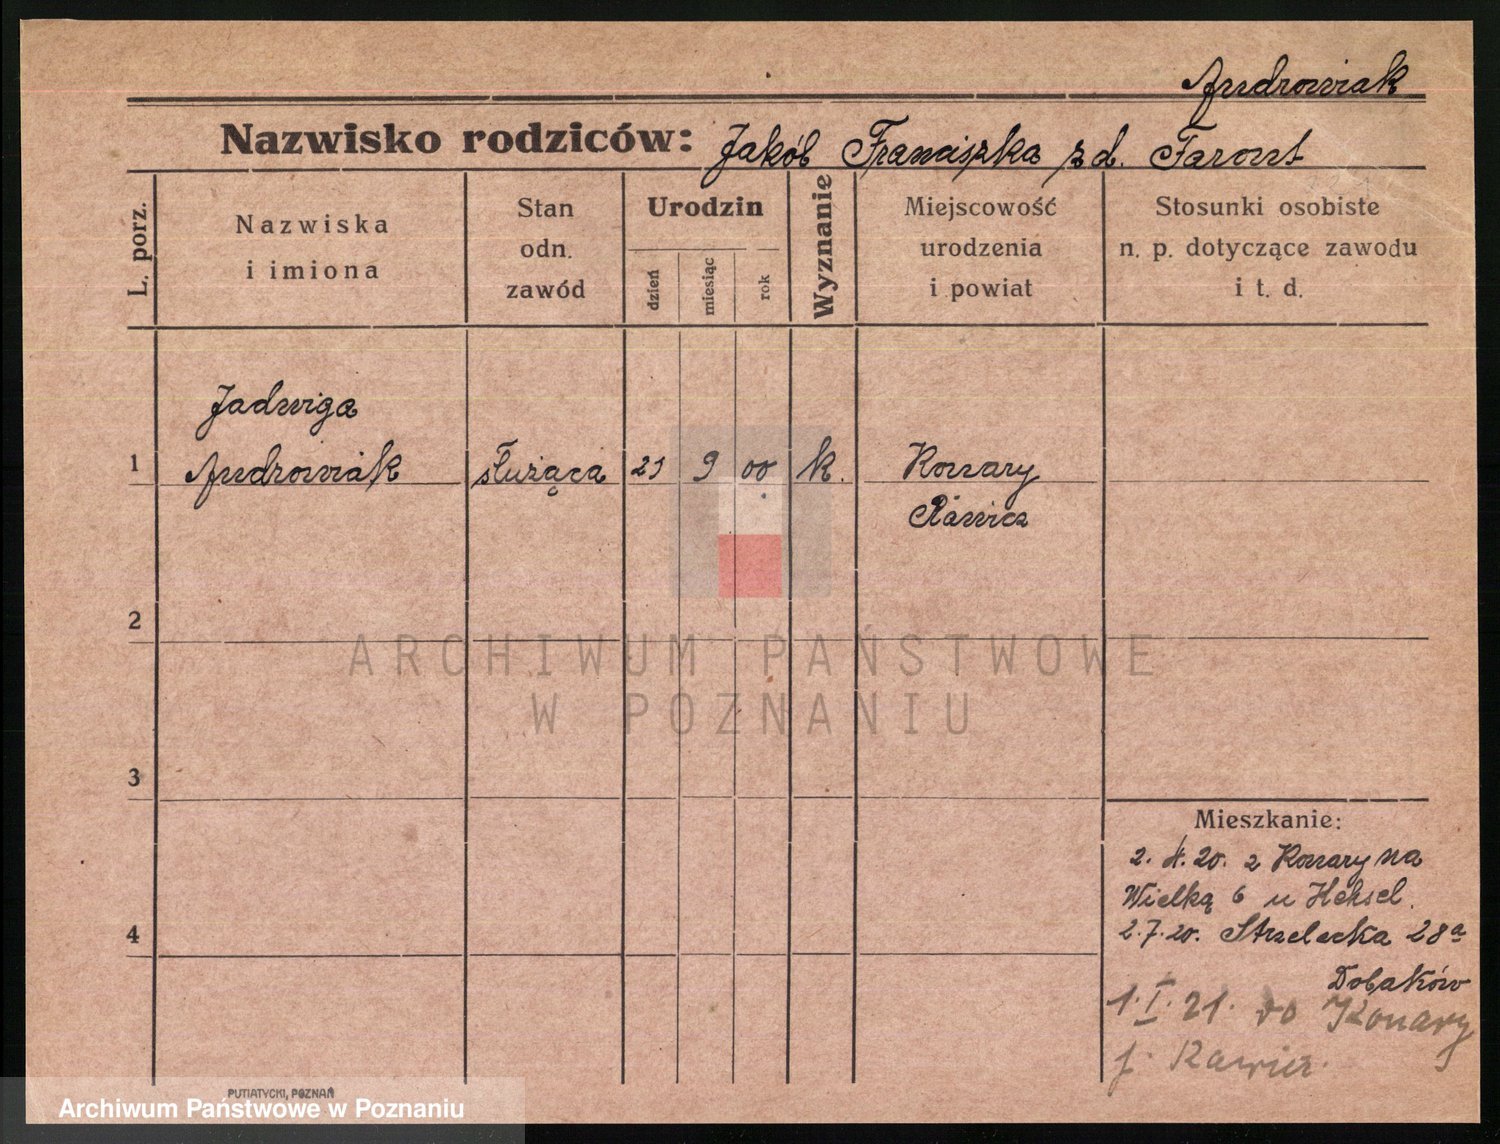 Androwiak
Nazwisko rodziców: Jakób Franciszka z d. Faront
L. porz.
Nazwiska
i imiona
Stan
odn.
zawód
Urodzin
dzień
miesiąc
rok
Wyznanie
Miejscowość
urodzenia
i powiat
Stosunki osobiste
n. p. dotyczące zawodu
i t. d.
Jadwiga
1 Androwiak służąca 21 9 00 k. Konary
Rawicz
2
ARCHIWUM PAŃSTWOWE
W POZNANIU
3
Mieszkanie:
2. 4. 20. z Konary na
Wielką 6 u Heksel.
4
2.7.20. Strzelecka 28a
1.I.21. do Konary
p. Rawicz.
PUTIATYCKI, POZNAŃ
Archiwum Państwowe w Poznaniu